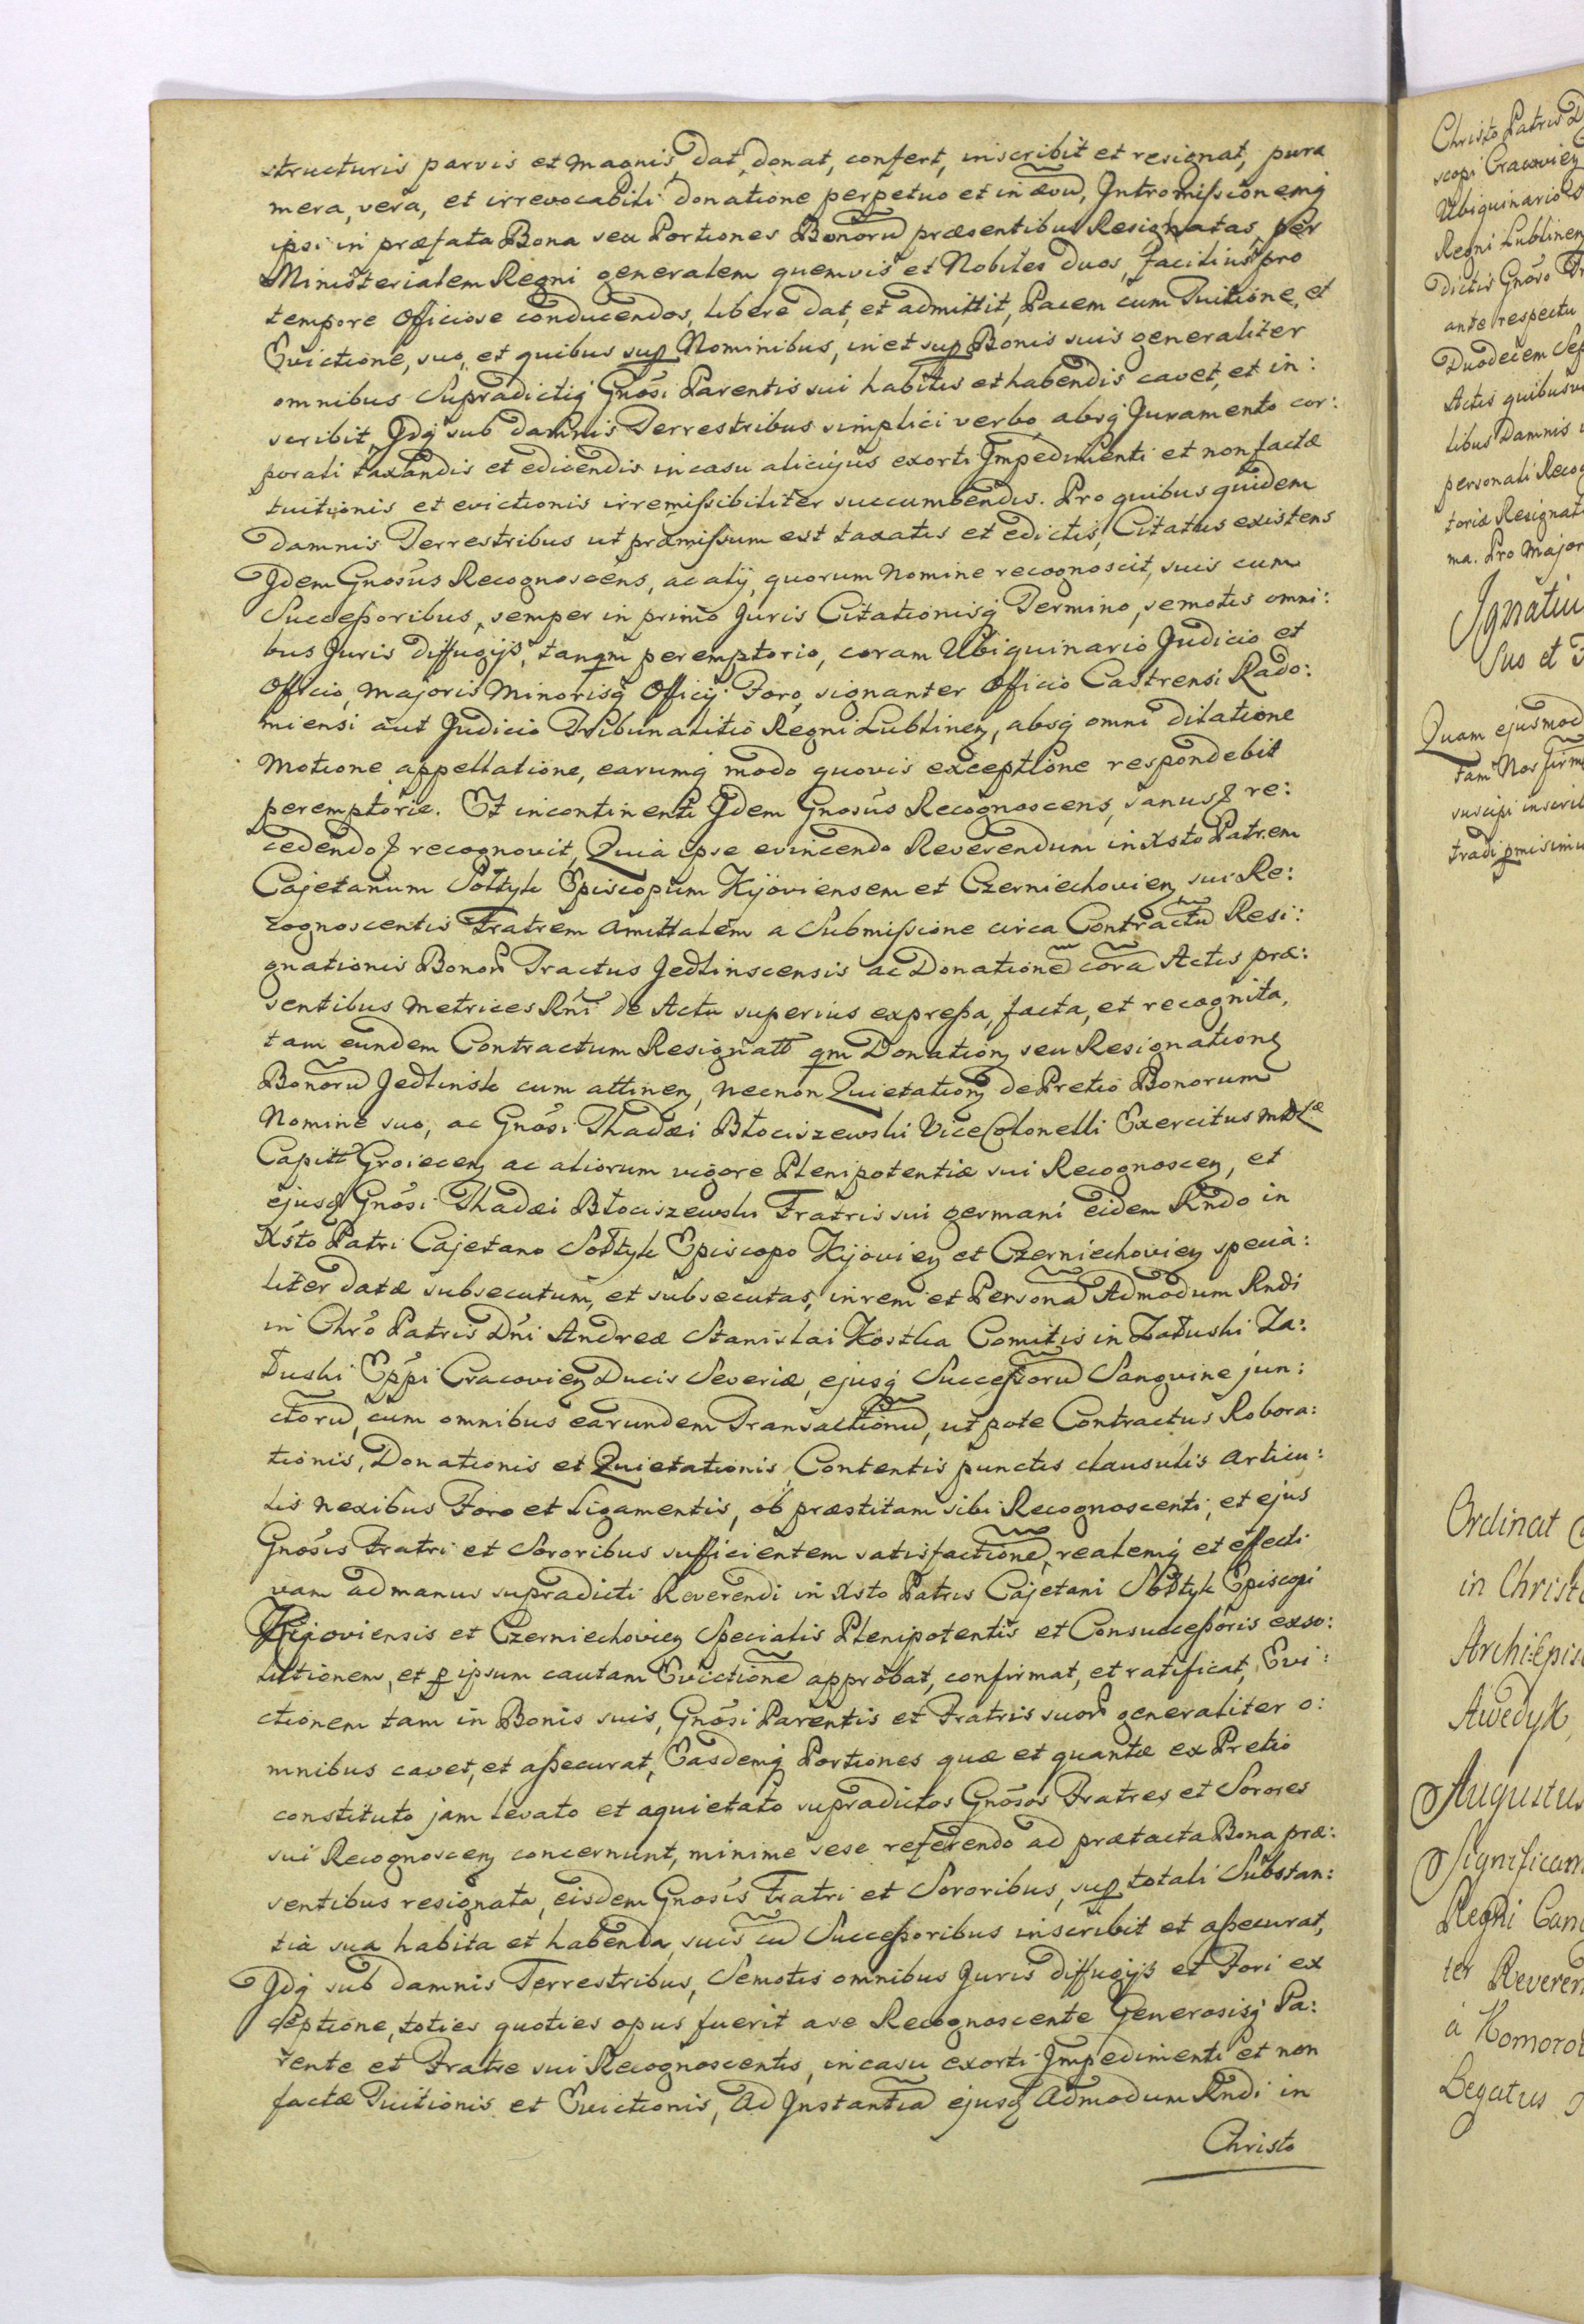 structuris parvis et magnis, dat, donat, confert, inscribit et resignat, pura
mera, vera, et irrevocabili donatione perpetuo et in ævũ, Intromissionemq́
ipsi in præfata Bona seu Portiones Bonorũ præsentibus Resignatas per
Ministerialem Regni generalem quemvis et Nobiles duos, facilius pro
tempore officiose conducendos, libere dat, et admittit, Pacem cum Tuitione, et
Evictione, suo, et quibus sup Nominibus, in et sup Bonis suis generaliter
omnibus Supradictiq́ Gnõsi Parentis sui habitis et habendis cavet, et in:
scribit, Idq́ sub damnis Terrestribus simplici verbo absq́ Juramento cor:
porali taxandis et edicendis in casu alicujus exorti Impedimenti et non factæ
tuitionis et evictionis irremissibiliter succumbendis. Pro quibus quidem
damnis Terrestribus ut præmissum est taxatis et edictis, Citatus existens
Idem Gnosus Recognoscens, ac alij, quorum Nomine recognoscit, suis cum
Successoribus, semper in primo Juris Citationisq́ Termino, semotis omni:
bus Juris diffugijs, tanqm peremptorio, coram Ubiquinario Judicio et
Officio, majoris Minorisq́ Officij Foro, signanter Officio Castrensi Rado:
miensi aut Judicio Tribunalitio Regni Lublinen, absq́ omni dilatione
Motione appellatione, earumq́ modo quovis exceptione respondebit
peremptorie. Et incontinenti Idem Gnosus Recognoscens, sanus & re:
cedendo & recognovit, Quia ipse evincendo Reverendum in Xsto Patrem
Cajetanum Sołtyk Episcopum Kijoviensem et Czerniechovien sui Re:
cognoscentis Fratrem Amittalem a Submissione circa Contractũ Resi:
gnationis Bonor Tractus Jedlinscensis ac Donationẽ corã Actis præ:
sentibus Metrices Rńi de Actu superius expressa, facta, et recognita,
tam eundem Contractum Resignatt qm Donation seu Resignation
Bonorũ Jedlinsk cum attinen, necnon Quietation de Pretio Bonorum
Nomine suo, ac Gnõsi Thadæi Błociszewski ViceColonelli Exercitus
Capitt Groiecen ac aliorum vigore Plenipotentiæ sui Recognoscen, et
ejusq Gnõsi Thadæi Błociszewski Fratris sui germani eidem Rndo in
Xsto Patri Cajetano Sołtyk Episcopo Kijovien et Czerniechovien specia:
liter datæ subsecutum, et subsecutas, in rem et Personã Admodum Rndi
in Chrõ Patris Dńi Andreæ Stanislai Kostka Comitis in Załuski Za:
łuski Eppi Cracovien Ducis Severiæ, ejusq́ Successorũ Sanguine jun:
ctorũ, cum omnibus earundem Transactionũ, utpote Contractus Robora:
tionis, Donationis et Quietationis, Contentis punctis clausulis articu:
lis nexibus Foro et ligamentis, ob præstitam sibi Recognoscenti, et ejus
Gnosis Fratri et Sororibus sufficientem satisfactionẽ, realemq́ et effecti
vam ad manus supradicti Reverendi in Xsto Patris Cajetani Sołtyk Episcopi
Kijoviensis et Czerniechovien Specialis Plenipotentis et Consuccessoris exso:
lutionem, et p ipsum cautam Evictionẽ approbat, confirmat, et ratificat, Evi:
ctionem tam in Bonis suis, Gnõsi Parentis et Fratris suor generaliter o:
mnibus cavet, et assecurat, Easdemq́ Portiones quæ et quantæ ex Pretio
constituto jam levato et aquietato supradictos Gnõsos Fratres et Sorores
sui Recognoscen concernunt, minime sese referendo ad prætacta Bona præ:
sentibus resignata, eisdem Gnosis Fratri et Sororibus, sup totali Substan:
tia sua habita et habenda, suis cũ Successoribus inscribit et assecurat,
Idq́ sub damnis Terrestribus, Semotis omnibus Juris diffugijs et Fori ex
ceptione, toties quoties opus fuerit a se Recognoscente Generosisq́ Pa:
rente et Fratre sui Recognoscentis, in casu exorti Impedimenti et non
factæ Tuitionis et Evictionis, Ad Instantiã ejusq Admodum Rndi in
Christo
Christo Patris D
scopi Cracovien
Ubiquinario
Regni Lublinen
dictis Gnõso
ante respectu
Duodecem Sep
Actis quibusv
libus Damnis
personali Recog
toriæ Resignat
ma. Pro Major
Ignatiu
Suo et
Quam ejusmod
tam Nos firm
suscipi inscrib
tradi pmisimu
Ordinat
in Christo
Archi:Epis
Awedyk
Augustus
Significam
Regni Canc
ter Reveren
à Komoro
Legatus